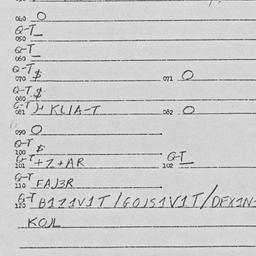 040 O
Q-T
050
Q-T
060
Q-T $
070 071 O
Q-T $
080
Q-T )+ KLIA-T
081 082 O
090 O
Q-T $
100
Q-T +Z+AR Q-T
101 102
Q-T FAJ3R
110
Q-T B1Z1V1T/GOJS1V1T/DFX1N-
120
KOJL